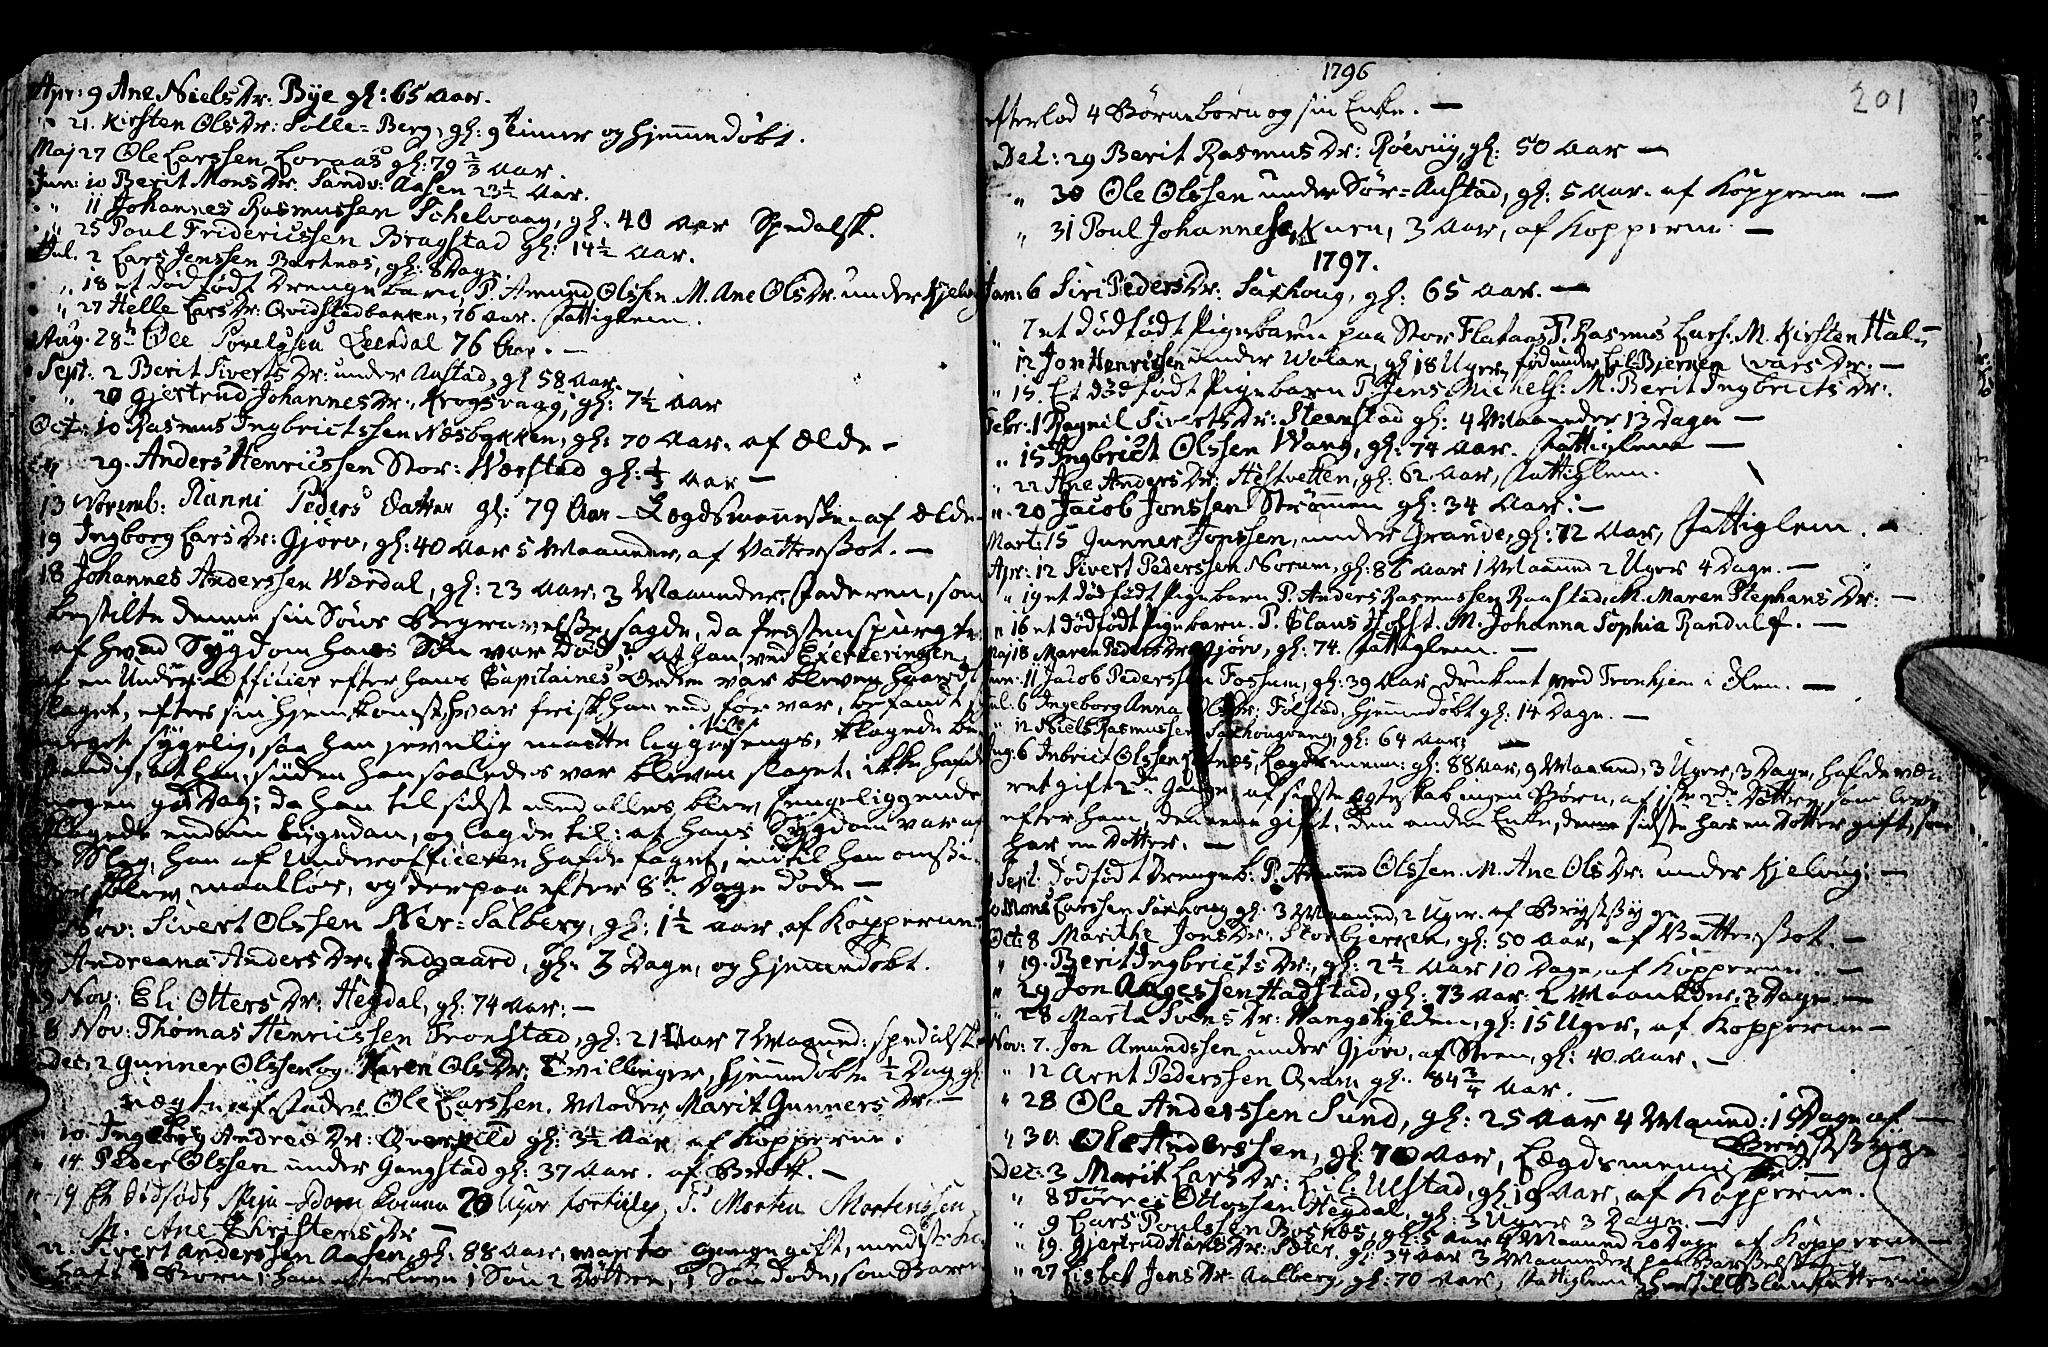 Apr: 9 Ane NielsDr: Bÿe gl: 65 Aar.
" 21. Kirsten OlsDr: Solle-Berg, gl: 9 Timer og hjemmedøbt.
Maj 27 Ole Larssen Loraas gl: 79 2/3 Aar.
Jun: 10 Berit MonsDr: Sandv: Aasen 23 1/2 Aar.
" 11 Johannes Rasmussen Schelvaag, gl: 40 Aar Spedalsk.
" 25 Poul Fridericssen Bragstad gl: 14 1/2 Aar.
Jul. 2 Lars Jenssen Bartnæs, gl: 8 Dage.
" 18 et dødfødt Drengebarn, P. Amund Olssen M. Ane OlsDr. under Kjelvig
" 27 Helle LarsDr: Qvidstadbanken, 76 Aar. Fattiglem.
Aug. 28 Ole Leendal 76 Aar. —
Sept: 2 Berit SivertsDr: under Austad, gl 58 Aar.
" 20 Gjertrud JohannesDr: Krogsvaag, gl: 7 1/2 Aar
Oct: 10 Rasmus Ingbrictssen Næsbÿkken, gl: 70 Aar. af Ælde —
" 29. Anders Henricssen Stor: Wærstad gl: 1/3 Aar —
13 Novemb: Ranni Peders Datter gl: 79 Aar — Lægdsmenneske af Ælde
19 Ingborg LarsDr: Gjørv, gl: 40 Aar 5 Maaneder, af Vattersot. —
18 Johannes Anderssen Wærdal, gl: 23 Aar, 3 Maaneder, Faderen, som
bestilte denne sin Søns Begravelse, sagde, da Præsten spurgte
af hvad Sÿgdom hans Søn var død? at han ved Exerceringen
af en Under-Officier efter hans Capitaines Ordre var bleven haardt
slaget, efter sin hjemkomst, hvor frisk han end før var, befandt
meget sÿgelig, saa han jevnlig maatte ligge til sengs, klagede be-
standig, at han, siden han saaledes var bleven slaget, ikke hafde
nogen god Dag; da han til sidst med alles blev sengeliggende
klagede end en bugedan, og lagde til: at hans Sÿgdom var af
de Slag, han af Underofficeren hafde faaet, indtil han omsi-
der blev maalløs, og derpaa efter 8te Dage døde —
Nov: Sivert Olssen Ner-Salberg, gl: 1 1/2 Aar, af Kopperne
Andreana AndersDr: Indgaard, gl: 3 Dage, og hjemmedøbt.
9 Nov: Eli OttersDr: Hegdal, gl: 74 Aar: —
8 Nov: Thomas Henricssen Tronstad, gl: 21 Aar 7 Maaned: spedalsk
Dec: 2 Gunner Olssen og Karen OlsDr: Tvillinger, hjemmedøbte 1/2 Dag gl:
uægte af Fader Ole Larssen. Moder Marit GunnersDr: —
" 10. Ingeborg AndreæDr: Qverkild gl: 3 1/2 Aar af Kopperne.
" 14 Peder Olssen under Gangstad gl: 37 Aar. af Brok. —
" 19 Et dødfødt Pige-Barn komne 20 Uger fortidlig, P. Morten Mortenssen,
M. Ane ChristensDr —
22. Sivert Anderssen Aasen, gl: 88 Aar, var to Gange gift, med 1ste
haft Børn, ham efterleve 1 Søn 2 Døttre, 1 Søn døde, som Faren
1796
201
efterlod 4 Børnebørn og sin Enke. —
Dec: 29 Berit RasmusDr: Røevig, gl: 50 Aar —
" 30 Ole Olssen under Sør-Austad, gl: 5 Aar. af Kopperne —
" 31 Poul Johannessen, 3 Aar, af Kopperne —
1797.
Jan: 6 Siri PedersDr: Saxhoug, gl: 65 Aar. —
" 7 et dødfødt Pigebarn paa Stor Flataas P. Rasmus Lars: M. Kirsten Hal-
" 12 Jon Henricssen under Wolan, gl 18 Uger, født under Bjerken vars Dr: —
" 15. Et dødfødt Pigebarn P. Jens Michels: M. Berit IngbrictsDr:
Febr: 1 Ragnil SivertsDr: Steenstad gl: 4 Maaneder 13 Dage —
" 15 Ingbrict Olssen Wang, gl: 74 Aar. Fattiglem —
" 22 Ane AndersDr: Hestvetten, gl: 62 Aar, Fattiglem.
" 20 Jacob Jonssen Strømmen gl: 34 Aar: —
Mart: 15 Gunner Jonssen, under Grande, gl: 72 Aar, Fattiglem. —
Apr: 12 Sivert Pederssen Norum, gl: 86 Aar 1 Maaned 2 Uger 4 Dage. —
" 19 et dødfødt Pigebarn P. Anders Rasmussen Raastad, M. Maren StephansDr: —
" 16 et dødfødt Pigebarn. P. Claus Holst. M. Johanna Sophia Randulf. —
Maj 18 Maren PedersDr Gjørv, gl: 74. Fattiglem. —
Jun: 11 Jacob Pederssen Fossum, gl: 39 Aar druknet ved Tronhjem i Elen. —
Jul. 6 Ingeborg Anna OlsDr: Følstad, hjemmedøbt gl: 14 Dage. —
" 12 Niels Rasmussen Saxhougvang, gl: 64 Aar; —
Aug: 6 Inbrict Olssen, Lægdsmem: gl: 88 Aar, 9 Maaned, 3 Uger, 3 Dage, hafde vær-
ret gift 2de Gange, af sidste Ægteskab ingen Børn, af 1ste 2de Døttre, som leve
efter ham, den eene gift, den anden Enke, denne sidste har en Datter gift, som
har en Datter. —
1 Sept: dødfødt Drengeb: P. Amund Olssen. M. Ane OlsDr: under Kjelvig: —
Mons Larssen Saxhoug gl: 3 Maaned, 2 Uger. af Brÿstsÿge
Oct: 8 Marithe JonsDr: Storbjerken, gl: 50 Aar, af Vattersot. —
" 19. Berit IngbrictsDr:, gl: 2 1/2 Aar 10 Dage, af Kopperne. —
" 29 Jon Aagessen Hadstad, gl: 73 Aar: 2 Maaneder, 3 Dage —
" 28 Marta SvensDr: Vangshÿlden, gl: 15 Uger, af Kopperne —
Nov: 7. Jon Amundssen under Gjørv, af Steen, gl: 40 Aar. —
" 12 Arnt Pederssen Qvam gl: 84 3/4 Aar. —
" 28 Ole Anderssen Sund, gl: 25 Aar 4 Maaned: 15 Dage af —
Brÿstsÿge
" 30. Ole Anderssen, gl: 70 Aar, Lægdsmenniske. —
Dec: 3 Marit LarsDr: Lil: Ulstad, gl 19 Aar, af Kopperne.
" 8 Torres Ottossen Hegdal, gl: 3 Uger 3 Dage. —
" 9 Lars Poulssen Bosnæs, gl: 5 Aar 9 Maaned 20 Dage af Kopperne —
" 19. Gjertrud LarsDr: Sæter, gl: 34 Aar 3 Maaneder, paa Barselseng —
" 27 Lisbet JensDr: Aalberg, gl: 70 Aar, Fattiglem